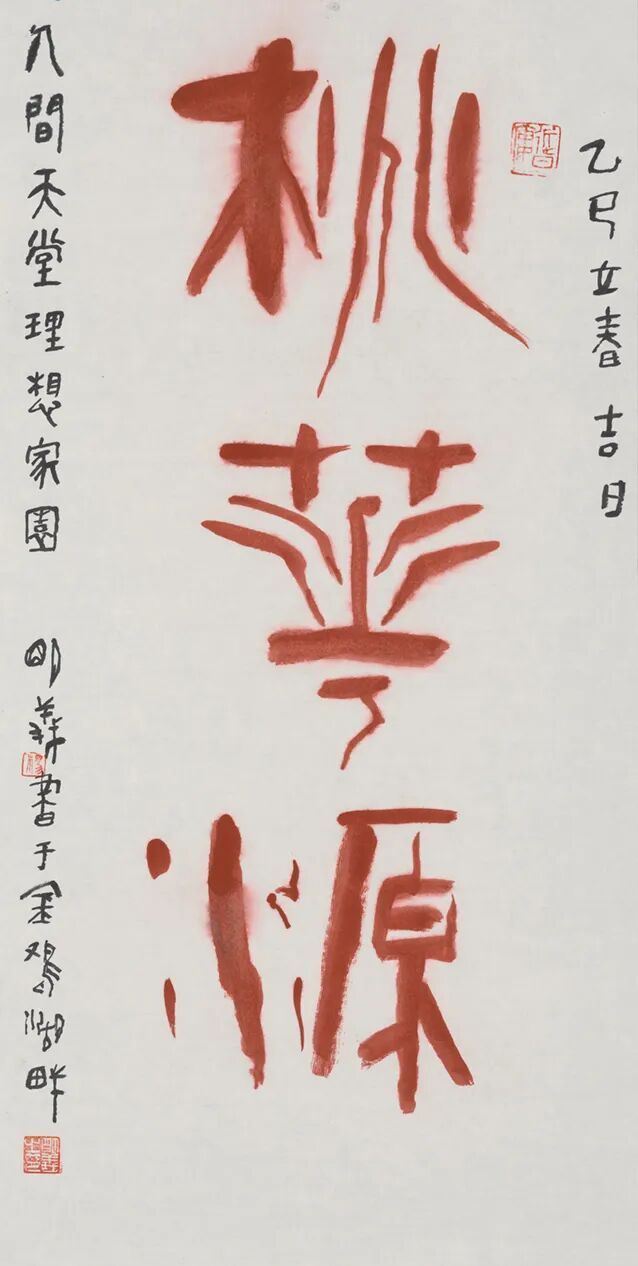 乙巳立春吉日
桃華源
人間天堂理想家園
明義書于金鸡湖畔